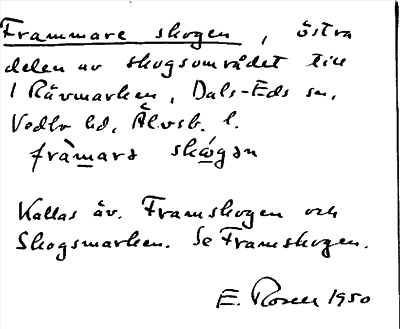 Frammare skogen, östra
delen av skogsområdet till
1 Rävmarken, Dals-Eds sn,
Vedbo hd, Älvsb. l.
framarə skogən
Kallas äv. Framskogen och
Skogsmarken. Se Framskogen.
E. Rosell 1950